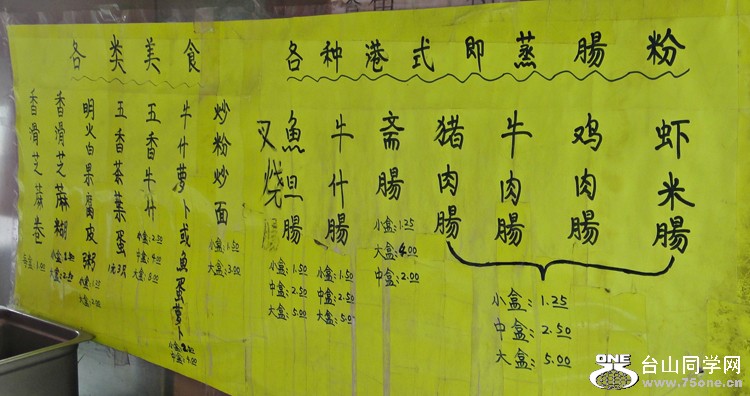 各类美食
香滑芝麻卷
每盒:1.00
香滑芝麻糊
小盒:
大盒:
明火白果腐皮粥
小盒:
大盒:
五香茶葉蛋
1元3只
五香牛什
小盒:2.00
中盒:4.00
大盒:
牛什萝卜或魚蛋萝卜
小盒:2.00
中盒:4.00
炒粉炒面
小盒:1.50
大盒:3.00
各种港式即蒸腸粉
叉烧腸
魚旦腸
小盒:1.50
中盒:2.50
大盒:5.00
牛什腸
小盒:1.50
中盒:2.50
大盒:5.00
斋腸
小盒:1.25
大盒:4.00
中盒:2.00
猪肉腸
牛肉腸
鸡肉腸
虾米腸
小盒:1.25
中盒:2.50
大盒:5.00
ONE
台山同学网
www.75one.cn